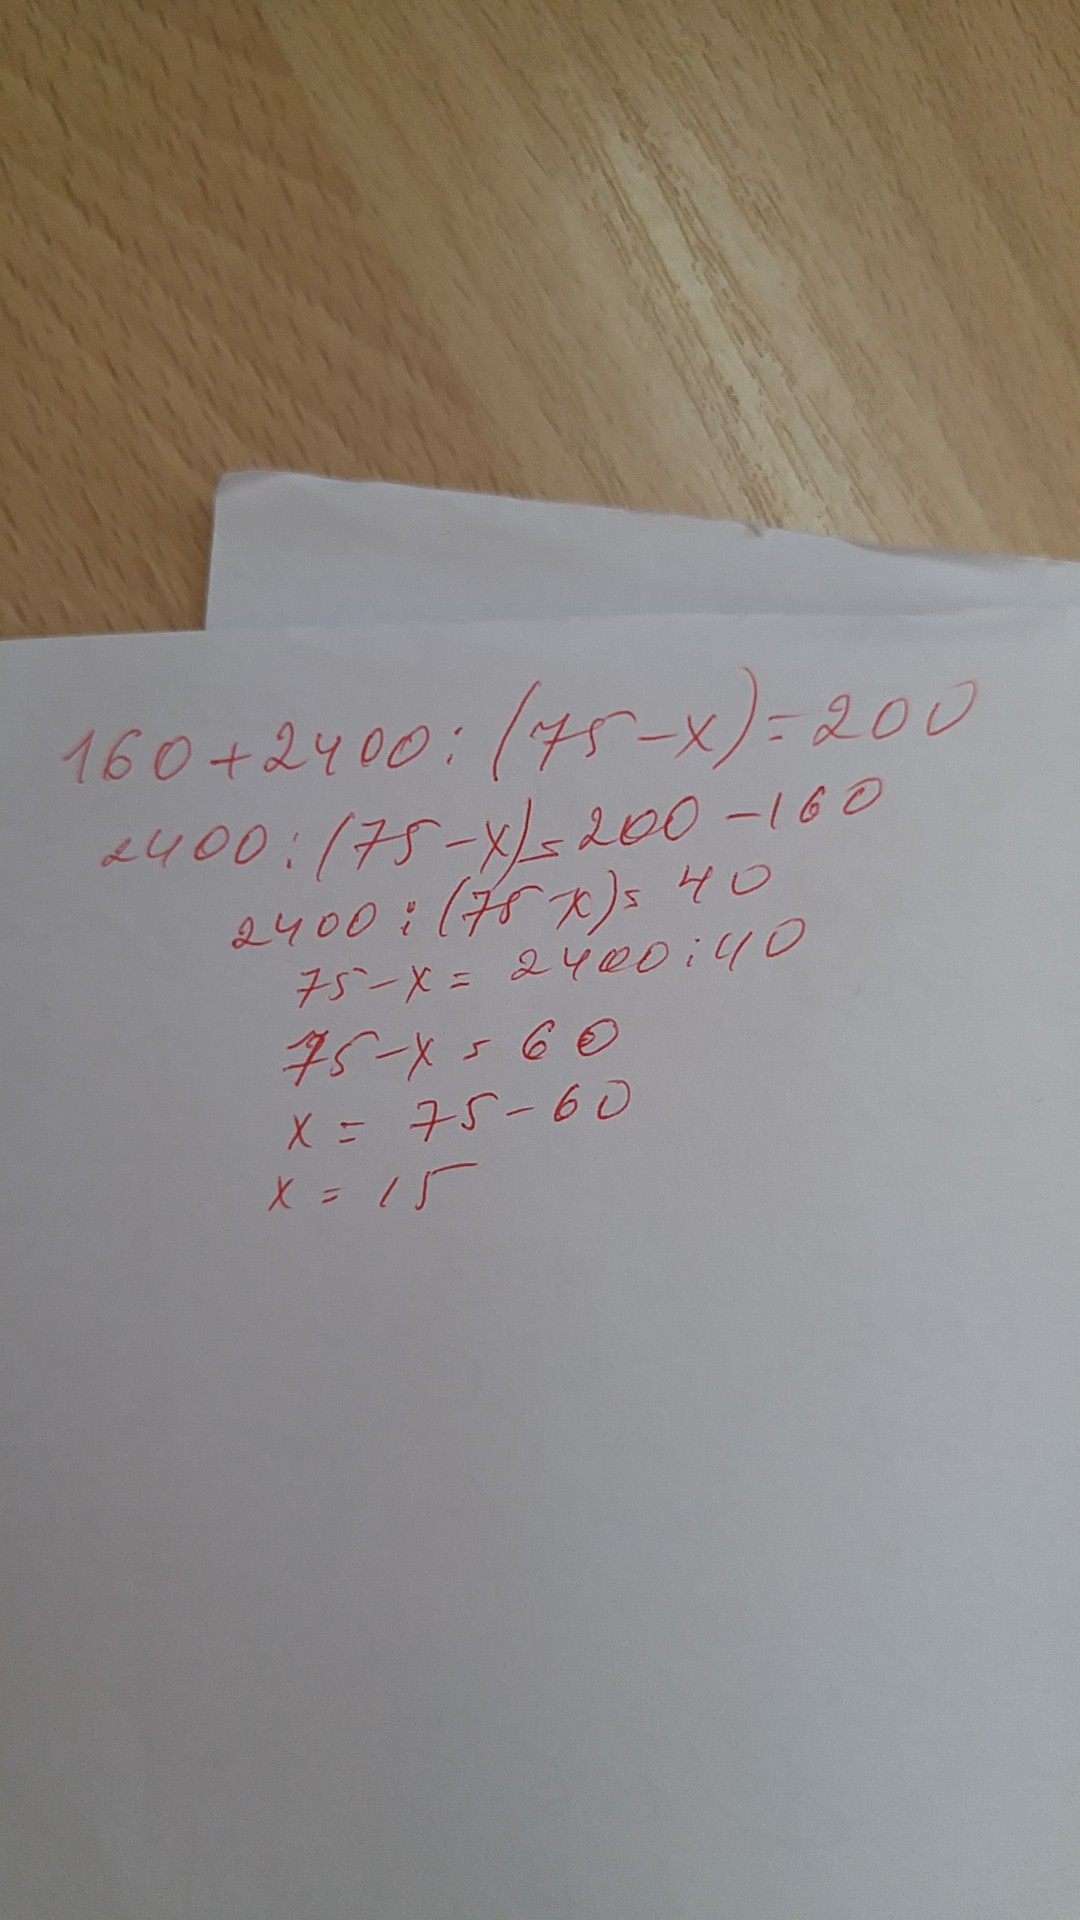 160+2400:(75-x)=200
2400:(75-x)=200-160
2400:(75-x)=40
75-x=2400:40
75-x=60
x=75-60
x=15